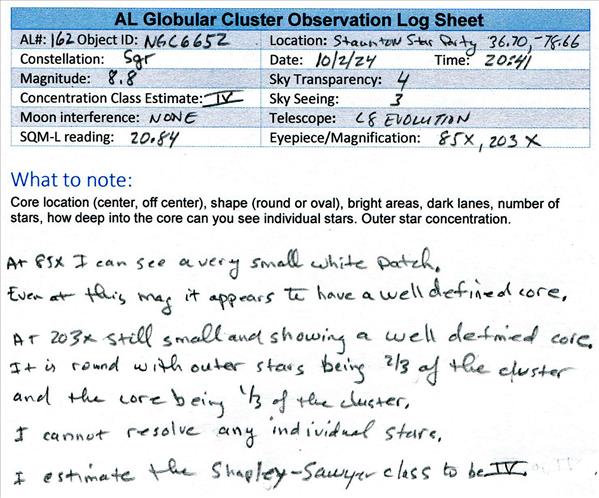 AL Globular Cluster Observation Log Sheet
AL#: 162 Object ID: NGC6652 Location: Staunton Star Party 36.70, -78.66
Constellation: Sgr Date: 10/2/24 Time: 20:41
Magnitude: 8.8 Sky Transparency: 4
Concentration Class Estimate: IV Sky Seeing: 3
Moon interference: NONE Telescope: C8 EVOLUTION
SQM-L reading: 20.84 Eyepiece/Magnification: 85X, 203X
What to note:
Core location (center, off center), shape (round or oval), bright areas, dark lanes, number of
stars, how deep into the core can you see individual stars. Outer star concentration.
At 85x I can see a very small white patch.
Even at this mag it appears to have a well defined core.
At 203x still small and showing a well defined core.
It is round with outer stars being 2/3 of the cluster
and the core being 1/3 of the cluster.
I cannot resolve any individual stars.
I estimate the Shapley-Sawyer class to be IV